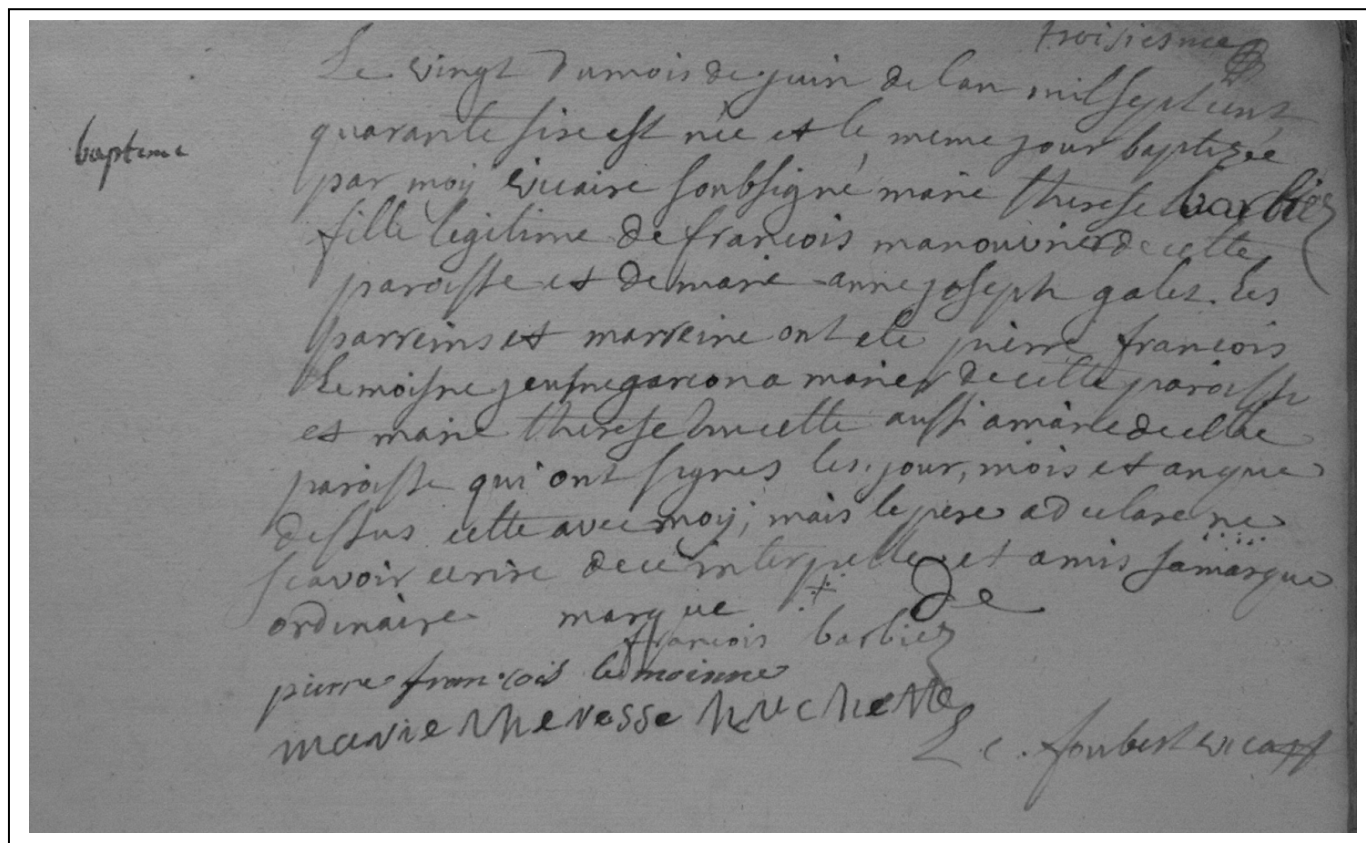 troisiesme
Le vingt du mois de juin de lan mil sept cent
bapteme
quarante sixe est née et le meme jour baptizée
par moy vicaire soubsigné marie therese barbiez
fille legitime de francois manouvrier de cette
paroisse et de marie anne joseph galez. les
parreins et marreine ont ete pierre francois
Le moisne jeusne garcon a marier de cette paroisse
et marie therese huccette aussi a marie de cette
paroisse qui ont signes les jour, mois et an que
dessus cette avec moy; mais le pere a declare ne
scavoir ecrire de ce interpelle et a mis sa marque
ordinaire marque + de
francois barbiez
pierre francois le moinne
marie theresse huchette
L. c. foubert vicaire